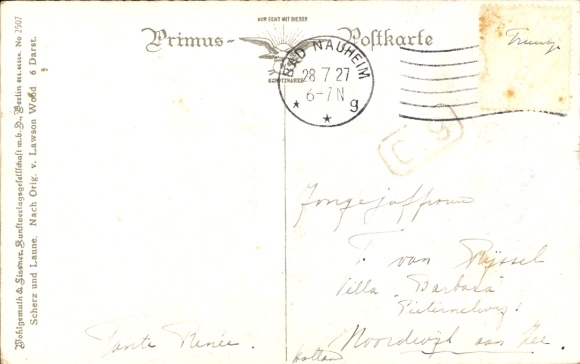 NUR ECHT MIT DIESER
Primus- Postkarte
SCHUTZMARKE
BAD NAUHEIM
28 7 27
6-7 N
* * g
Wohlgemuth & Lissner, Kunstverlagsgesellschaft m.b.H., Berlin No 2507
Scherz und Laune. Nach Orig. v. Lawson Wood 6 Darst.
Jongejuffrouw
T. van Rijssel
Villa Barbara
Noordwijk aan Zee.
Holland
Tante Renée.